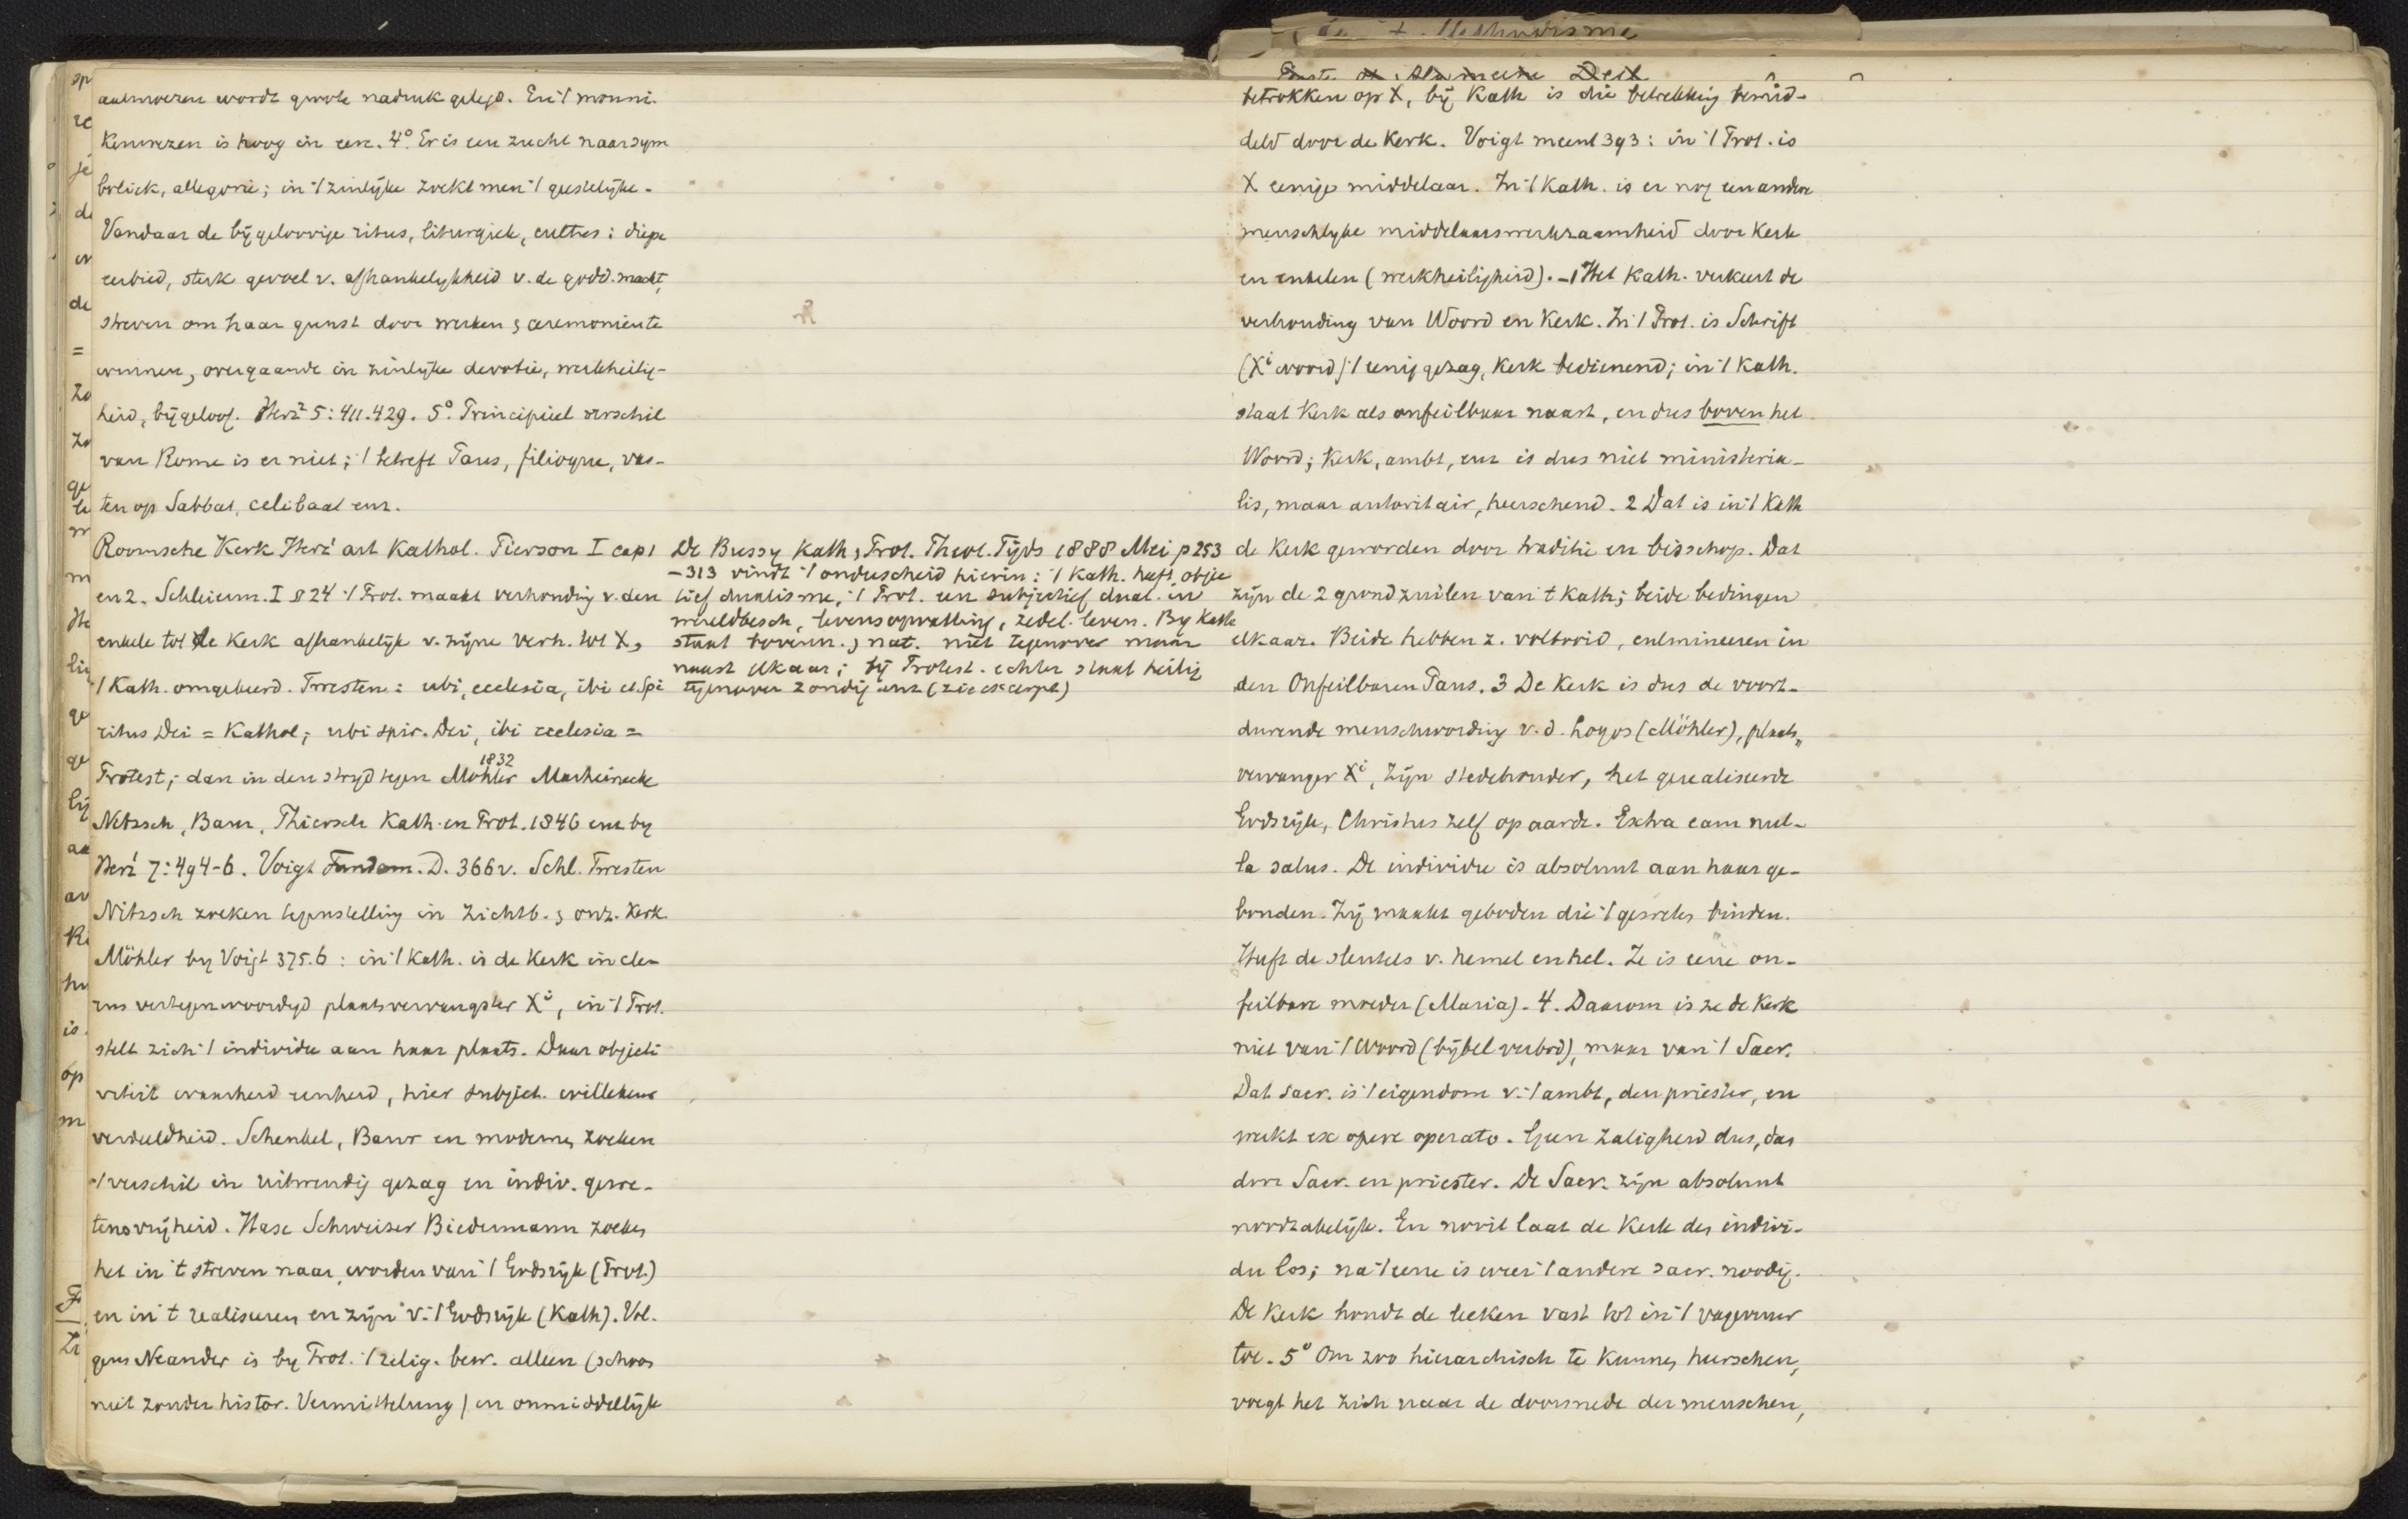 aalmoezen wordt groote nadruk gelegd. En 't monni-
kenwezen is hoog in eere. 4° Er is een zucht naar sym
boliek, allegorie; in 't zinlijke zoekt men 't geestelijke.
Vandaar de bijgeloovige ritus, liturgiek, cultus: diepe
eerbied, sterk gevoel v. afhankelykheid v. de godd. macht,
streven om haar gunst door werken & ceremonien te
winnen, overgaande in zinlijke devotie, werkheilig-
heid, bijgeloof. Herz² 5:411.429. 5° Principieel verschil
van Rome is er niet; 't betreft Paus, filioque, vas-
ten op Sabbat, celibaat enz.
Roomsche Kerk Herz¹ art Kathol. Pierson I cap 1
en 2. Schleierm. I § 24 't Prot. maakt verhouding v. den
enkele tot de Kerk afhankelijk v. zijne verh. tot X,
't Kath. omgekeerd. Twesten: ubi ecclesia, ibi et Spi
ritus Dei = Kathol; ubi spir. Dei, ibi ecclesia =
1832
Protest; dan in den stryd tegen Möhler Marheinecke
Nitzsch, Baur, Thiersch Kath. en Prot. 1846 enz by
Herz¹ 7:494-6. Voigt Fundam. D. 366 v. Schl. Twesten
Nitzsch zoeken tegenstelling in zichtb. & onz. Kerk.
Möhler by Voigt 375.6: in 't Kath. is de Kerk in cle-
rus vertegenwoordigd plaatsvervangster Xi, in 't Prot.
stelt zich 't individu aan haar plaats. Daar objecti
viteit waarheid eenheid, hier subject. willekeur
verdeeldheid. Schenkel, Baur en moderne, zoeken
't verschil in uitwendig gezag en indiv. gewe-
tensvrijheid. Hase Schweizer Biedermann zoeken
het in 't streven naar, worden van 't Godsrijk (Prot.)
en in 't realiseren en zijn v. 't Godsrijk (Kath). Vol-
gens Neander is by Prot. 't relig. bew. alleen (schoon
niet zonder histor. Vermittelung) en onmiddellijk
De Bussy Kath & Prot. Theol. Tijds 1888 Mei p 253
-313 vindt 't onderscheid hierin: 't Kath. heeft objec
tief dualisme, 't Prot. een subjectief dual. in
wereldbesch, levensopvatting, zedel. leven. By Kath
staat bovenn. & nat. niet tegenover maar
naast elkaar; bij Protest. echter staat heilig
tegenover zondig enz (zie excerpt)
betrokken op X, bij Kath is die betrekking bemid-
deld door de Kerk. Voigt meent 393: in 't Prot. is
X eenige middelaar. In 't Kath. is er nog een andere
menschlyke middelaarswerkzaamheid door Kerk
en enkelen (werkheiligheid). - 1 Het Kath. verkeert de
verhouding van Woord en Kerk. In 't Prot. is Schrift
(Xi woord) 't eenig gezag, Kerk bedienend; in 't Kath.
staat Kerk als onfeilbaar naast, en dus boven het
Woord; Kerk, ambt, enz is dus niet ministeria-
lis, maar autoritair, heerschend. 2 Dat is in 't Kath
de Kerk geworden door traditie en bisschop. Dat
zijn de 2 grondzuilen van 't Kath; beide bedingen
elkaar. Beide hebben z. voltooid, culmineeren in
den Onfeilbaren Paus. 3 De Kerk is dus de voort-
durende menschwording v. d. Logos (Möhler), plaats„
vervanger Xi, zijn stedehouder, het gerealiseerde
Godsrijk, Christus zelf op aarde. Extra eam nul-
la salus. De individu is absoluut aan haar ge-
bonden. Zij maakt geboden die 't geweten binden.
Heeft de sleutels v. hemel en hel. Ze is eene on-
feilbare moeder (Maria). 4. Daarom is ze de Kerk
niet van 't Woord (bijbel verbod), maar van 't Sacr.
Dat sacr. is 't eigendom v. 't ambt, den priester, en
werkt ex opere operato. Geen zaligheid dus, dan
door Sacr. en priester. De Sacr. zijn absoluut
noodzakelijk. En nooit laat de Kerk den indivi-
du los; na 't eene is weer 't andere sacr. noodig.
De Kerk houdt de leeken vast tot in 't vagevuur
toe. 5° Om zoo hierarchisch te kunnen heerschen,
voegt het zich naar de doorsnede der menschen,